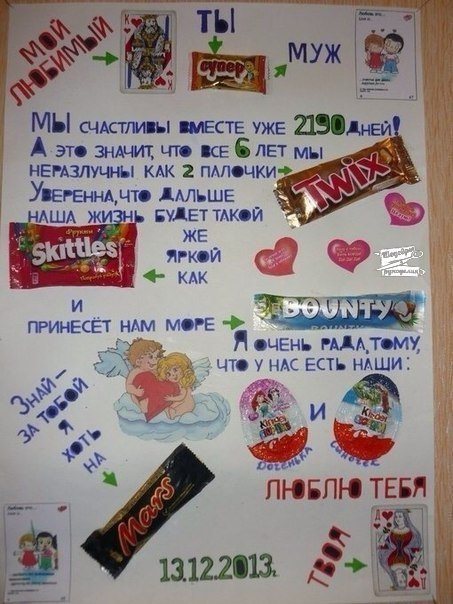 МОЙ ЛЮБИМЫЙ
ТЫ
супер
МУЖ
МЫ СЧАСТЛИВЫ ВМЕСТЕ УЖЕ 2190 ДНЕЙ!
А ЭТО ЗНАЧИТ, ЧТО ВСЕ 6 ЛЕТ МЫ
НЕРАЗЛУЧНЫ КАК 2 ПАЛОЧКИ
Twix
УВЕРЕННА, ЧТО ДАЛЬШЕ
НАША ЖИЗНЬ БУДЕТ ТАКОЙ
ЖЕ
ЯРКОЙ
КАК
Фрукты
Skittles
И
ПРИНЕСЁТ НАМ МОРЕ
BOUNTY
BOUNTY
Я ОЧЕНЬ РАДА, ТОМУ,
ЧТО У НАС ЕСТЬ НАШИ:
Kinder
И
Kinder
ДОЧЕНЬКА
СЫНОЧЕК
ЗНАЙ –
ЗА ТОБОЙ
Я
ХОТЬ
НА
Mars
ЛЮБЛЮ ТЕБЯ
ТВОЯ
13.12.2013г.